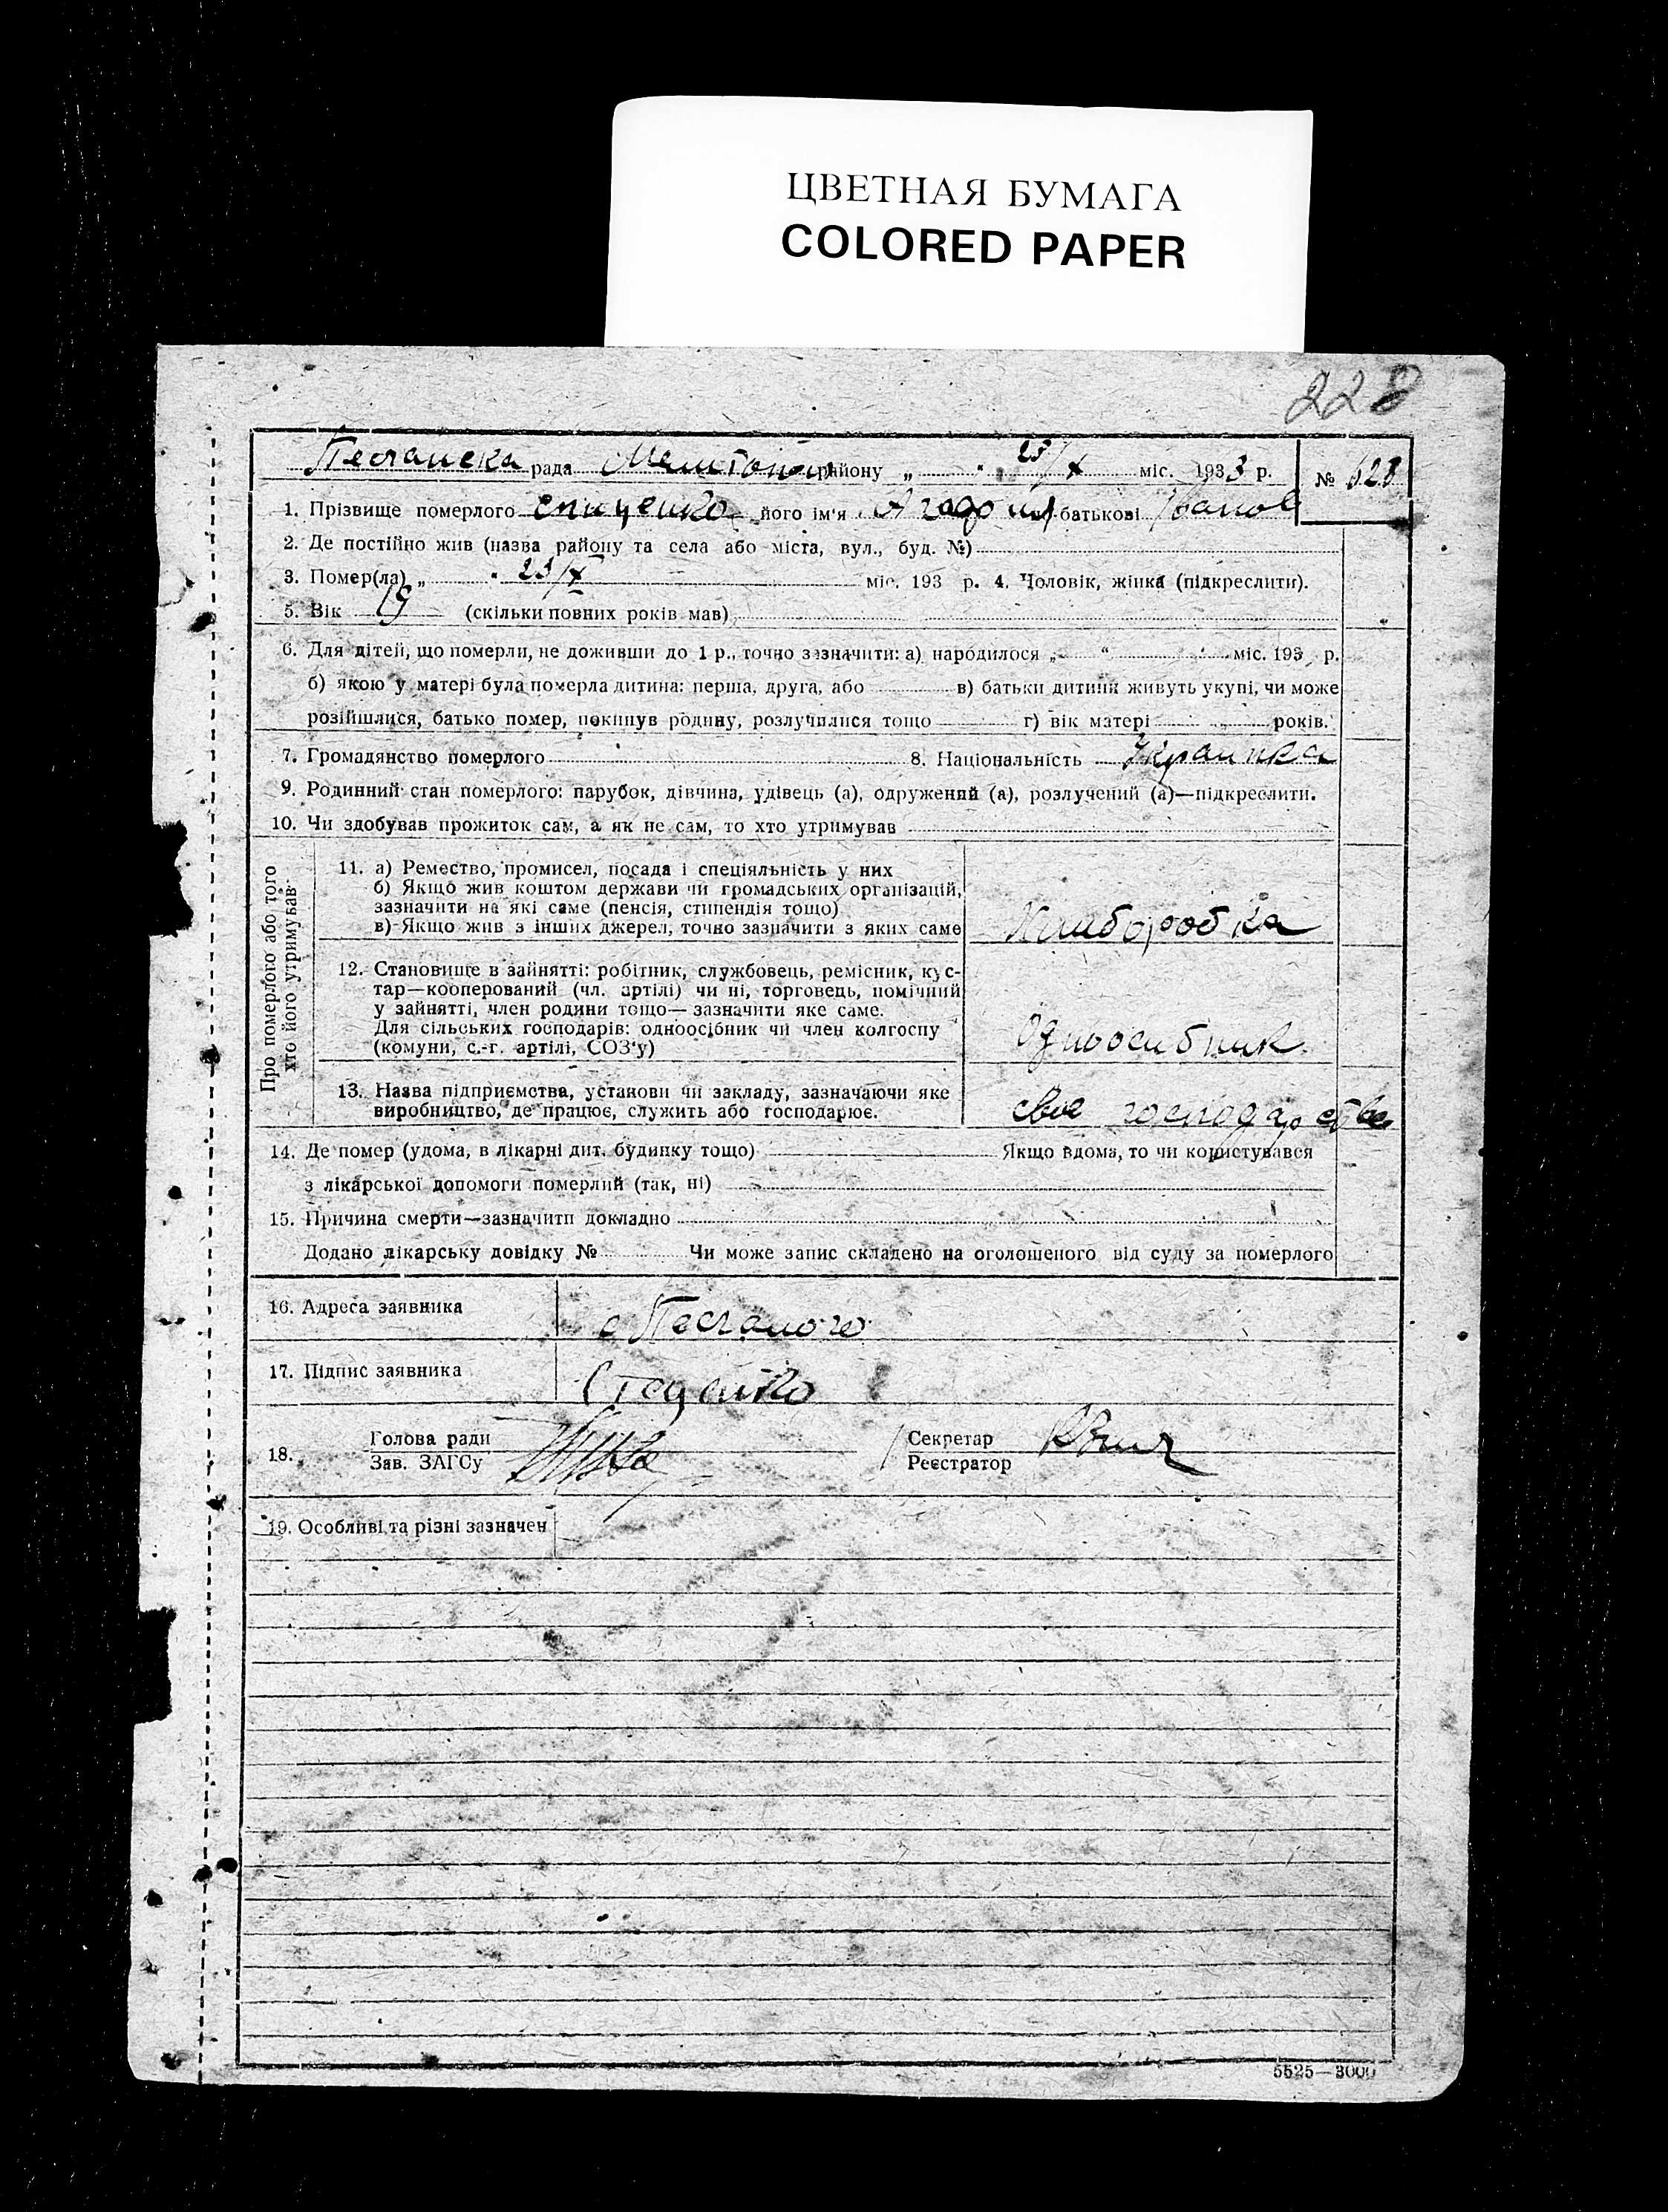 ЦВЕТНАЯ БУМАГА
COLORED PAPER
228
Песчанска рада району „ " 23/X міс. 1933 р. № 623
1. Прізвище померлого його ім'я батькові Іванов
2. Де постійно жив (назва району та села або міста, вул., буд. №)
3. Помер(ла) „ " 23/X міс. 193 р. 4. Чоловік, жінка (підкреслити).
5. Вік 19 (скільки повних років мав)
6. Для дітей, що померли, не доживши до 1 р., точно зазначити: а) народилося „ " міс. 193 р.
б) якою у матері була померла дитина: перша, друга, або в) батьки дитини живуть укупі, чи може
розійшлися, батько помер, покинув родину, розлучилися тощо г) вік матері років.
7. Громадянство померлого 8. Національність Украинка
9. Родинний стан померлого: парубок, дівчина, удівець (а), одружений (а), розлучений (а)—підкреслити.
10. Чи здобував прожиток сам, а як не сам, то хто утримував
Про померлого або того
хто його утримував
11. а) Ремество, промисел, посада і спеціяльність у них
б) Якщо жив коштом держави чи громадських організацій,
зазначити на які саме (пенсія, стипендія тощо)
в) Якщо жив з інших джерел, точно зазначити з яких саме
Хлиборобка
12. Становище в зайнятті: робітник, службовець, ремісник, кус-
тар—кооперований (чл. артілі) чи ні, торговець, помічний
у зайнятті, член родини тощо— зазначити яке саме.
Для сільських господарів: одноосібник чи член колгоспу
(комуни, с.-г. артілі, СОЗ'у)
Одноосибник
13. Назва підприємства, установи чи закладу, зазначаючи яке
виробництво, де працює, служить або господарює.
свое господарство
14. Де помер (удома, в лікарні дит. будинку тощо) Якщо вдома, то чи користувався
з лікарської допомоги померлий (так, ні)
15. Причина смерти—зазначити докладно
Додано лікарську довідку № Чи може запис складено на оголошеного від суду за померлого
16. Адреса заявника с Песчаного
17. Підпис заявника Стеценко
18. Голова ради Секретар
Зав. ЗАГСу Реєстратор
19. Особливі та різні зазначен
5525—3000